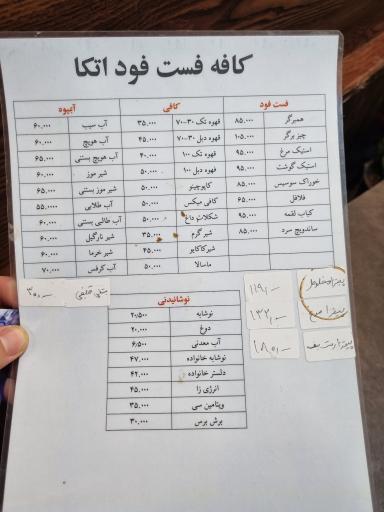 کافه فست فود اتکا
فست فود
همبرگر ۸۵.۰۰۰
چیز برگر ۱۰۵.۰۰۰
استیک مرغ ۹۵.۰۰۰
استیک گوشت ۹۵.۰۰۰
خوراک سوسیس ۸۵.۰۰۰
فلافل ۶۵.۰۰۰
کباب لقمه ۹۵.۰۰۰
ساندویچ سرد ۸۵.۰۰۰
کافی
قهوه تک ۳۰-۷۰ ۳۵.۰۰۰
قهوه دبل ۳۰-۷۰ ۴۵.۰۰۰
قهوه تک ۱۰۰ ۴۰.۰۰۰
قهوه دبل ۱۰۰ ۵۰.۰۰۰
کاپوچینو ۵۰.۰۰۰
کافی میکس ۵۰.۰۰۰
شکلات داغ ۵۰.۰۰۰
شیر گرم ۳۵.۰۰۰
شیرکاکایو ۴۵.۰۰۰
ماسالا ۵۰.۰۰۰
آبمیوه
آب سیب ۶۰.۰۰۰
آب هویج ۶۰.۰۰۰
آب هویج بستنی ۶۵.۰۰۰
شیر موز ۶۰.۰۰۰
شیر موز بستنی ۶۵.۰۰۰
آب طالبی ۵۵.۰۰۰
آب طالبی بستنی ۶۰.۰۰۰
شیر نارگیل ۶۰.۰۰۰
شیر خرما ۶۰.۰۰۰
آب کرفس ۷۰.۰۰۰
نوشانیدنی
نوشابه ۲۰/۵۰۰
دوغ ۲۰.۰۰۰
آب معدنی ۶/۵۰۰
نوشابه خانواده ۴۷.۰۰۰
دلستر خانواده ۴۲.۰۰۰
انرژی زا ۴۵.۰۰۰
ویتامین سی ۳۵.۰۰۰
برش برس ۳۰.۰۰۰
پیتزا مخلوط
پیتزا
پیتزا